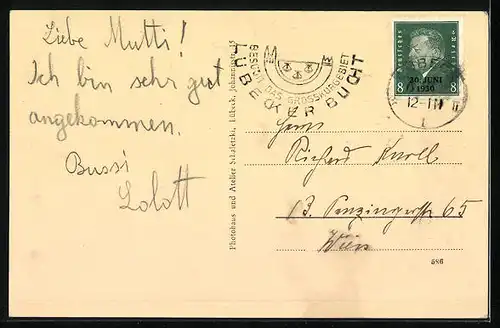 Liebe Mutti!
Ich bin sehr gut
angekommen.
Bussi
Lolott
Photohaus und Atelier Schaletzki, Lübeck, Johannisstr. 15
BESUCHT
DAS GROSSKURGEBIET
LÜBECKER BUCHT
Deutsches Reich
8 8
30. JUNI
1930
12-1N
Herrn
Richard Knoll
13. Penzingerstr 65
Wien
586